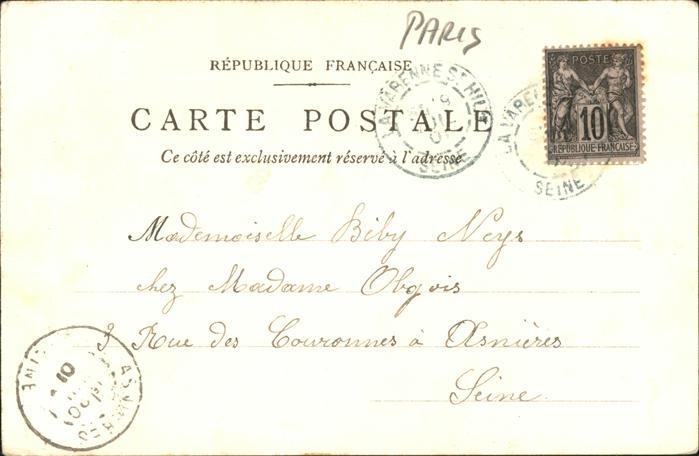 PARIS
RÉPUBLIQUE FRANÇAISE
CARTE POSTALE
Ce côté est exclusivement réservé à l'adresse
LA VARENNE ST HIL
SEINE
LA VARENNE
SEINE
POSTE
10
RÉPUBLIQUE FRANÇAISE
Mademoiselle Biby Neys
chez Madame Obgois
3 Rue des Couronnes à Asnières
Seine
ASNIÈRES